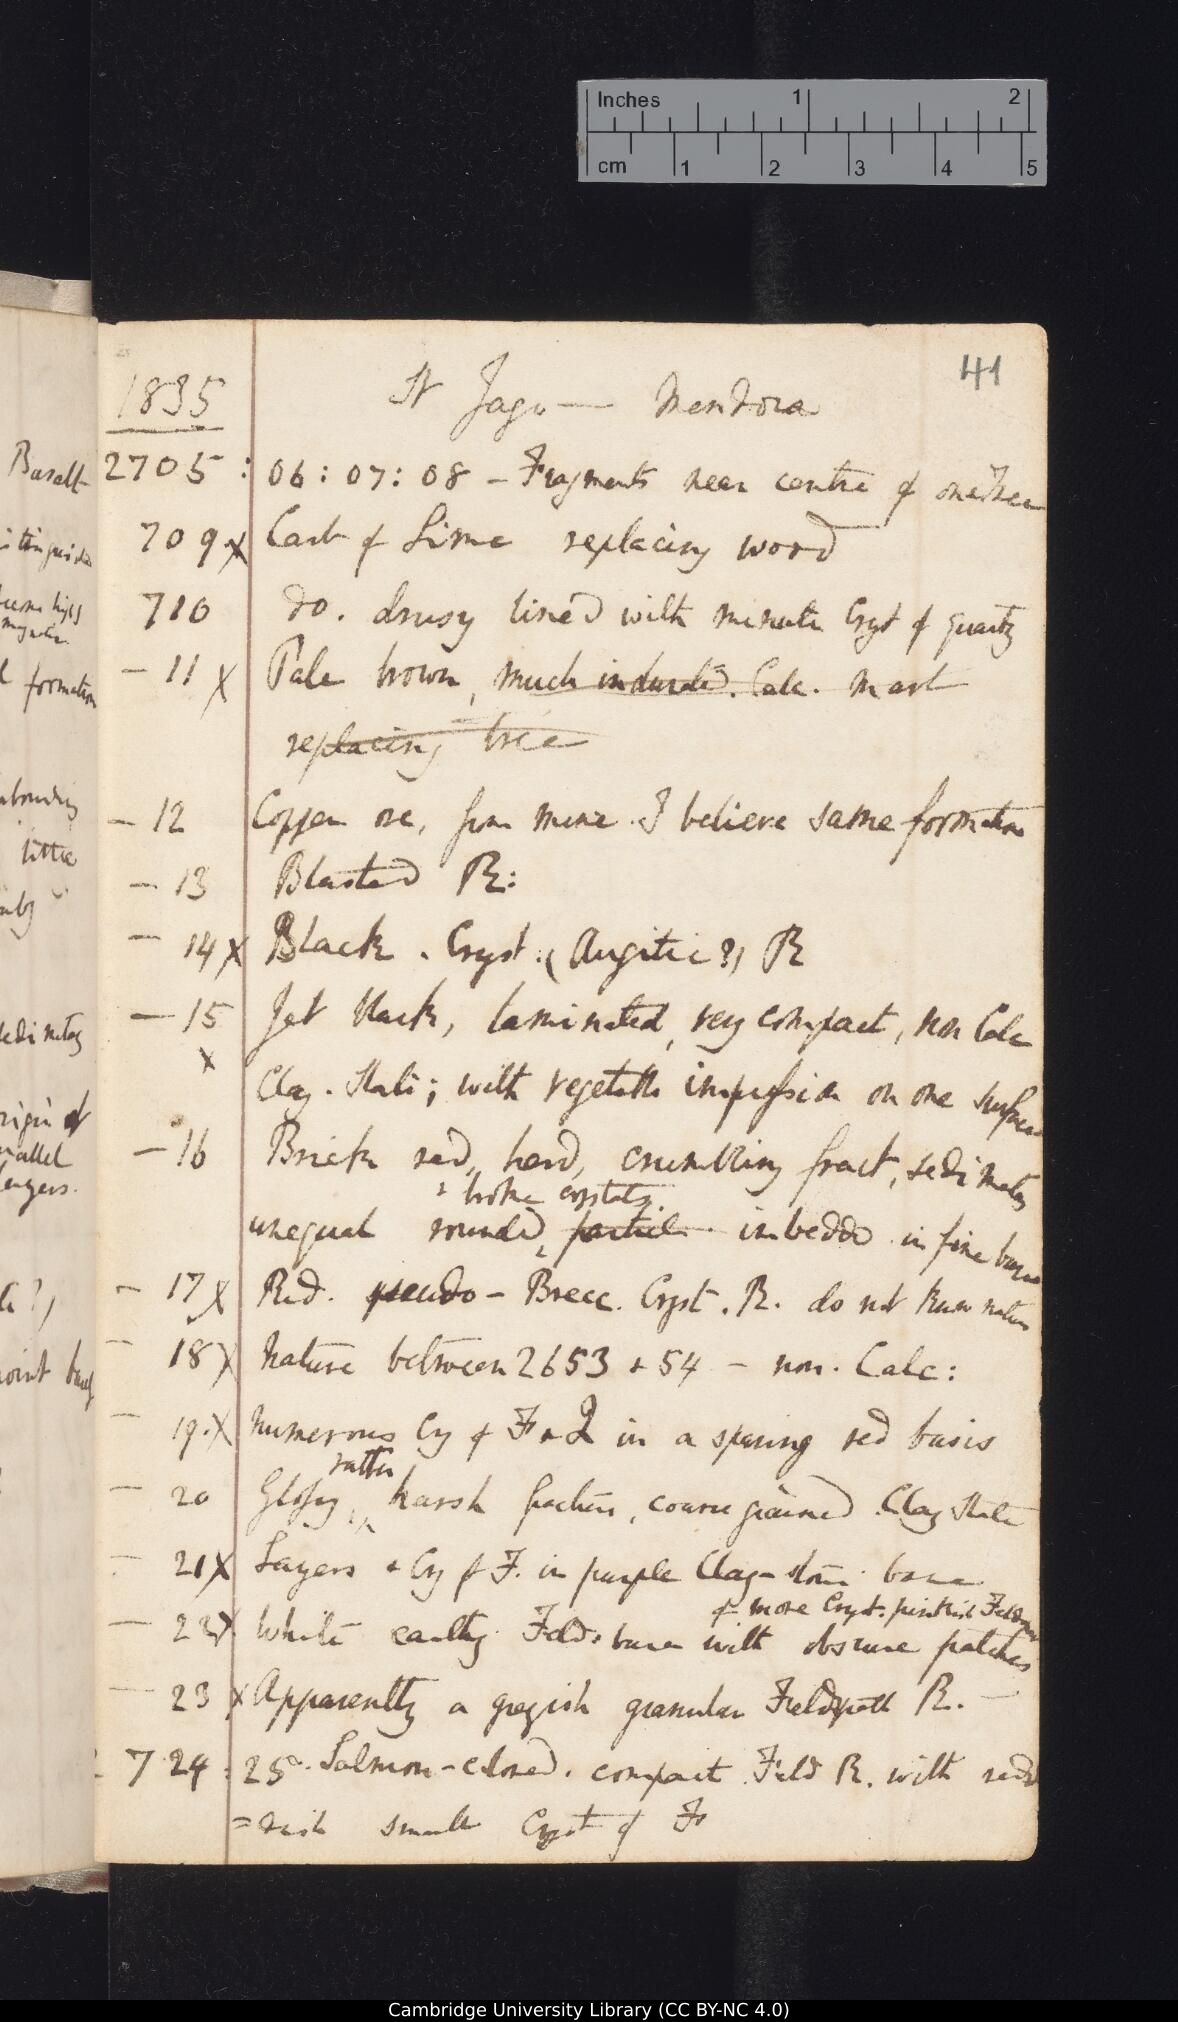 Inches 1 2
cm 1 2 3 4 5
41
1835 St Jago — Mendoza
2705 : 06 : 07 : 08 – Fragments near centre of one tree
709 x Cast of Lime replacing wood
710 do. drusy lined with minute Cryst of quartz
— 11 x Pale brown, much indurated. Calc. Marl
replacing tree
— 12 Copper ore, from mine. I believe same formation
— 13 Blasted R:
— 14 x Black. Cryst: (Augitic?) R
— 15 Jet black, laminated, very compact, non Calc
x Clay. Slate; with vegetable impression on one surface
— 16 Brick red, hard, crumbling fract, sedimentary
& broken crystals.
unequal rounded, particles imbedded in fine base
— 17 x Red. pseudo – Brecc. Cryst. R. do not know nature
— 18 x Nature between 2653 & 54 – non. Calc:
— 19. x Numerous Cry of F & Q in a sparing red basis
rather
— 20 Glossy, harsh fracture, coarse grained Clay Slate
— 21 x Layers & Cry of F. in purple Clay-stone base
of more Cryst. pinkish Feldspar
— 22 x White earthy Felds: base with obscure patches
— 23 x Apparently a greyish granular Feldspath R. —
2724 : 25. Salmon-colored. compact Feld R. with redd
=dish small Cryst of F
Basalt
formation
abounding
little
parallel
Cambridge University Library (CC BY-NC 4.0)